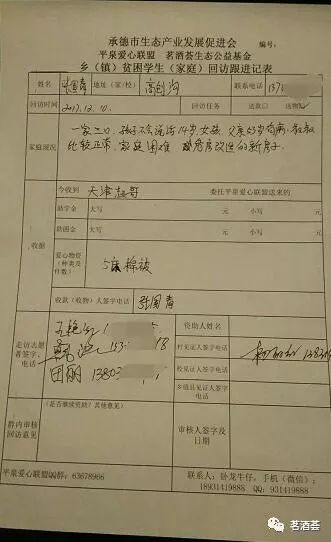 承德市生态产业发展促进会
编号:
平泉爱心联盟 茗酒荟生态公益基金
乡（镇）贫困学生（家庭）回访跟进记表
姓名 张国春 地址（家/校） 联系电话
回访时间 2017.12.10. 回访任务 送款□ 送物
家庭现况
一家三口，孩子不会说话14岁女孩，
比较正常，家庭困难 危房改造的新房子
收据
今收到 天津赵哥 委托平泉爱心联盟送来的
助学金 大写 元 小写 元
助困金 大写 元 小写 元
爱心物资（种类及件数） 5床棉被
收款（收物）人签字电话 张国春
走访志愿者签字、电话
资助人姓名
村见证人签字电话
校见证人签字电话
乡镇县见证人签字电话
群内审核回访意见
（是否继续资助？其他意见）
审核人签字及日期
平泉爱心联盟QQ群：63678966
联系人：卧龙牛仔，手机（微信）：
18931419888 QQ：931419888
茗酒荟